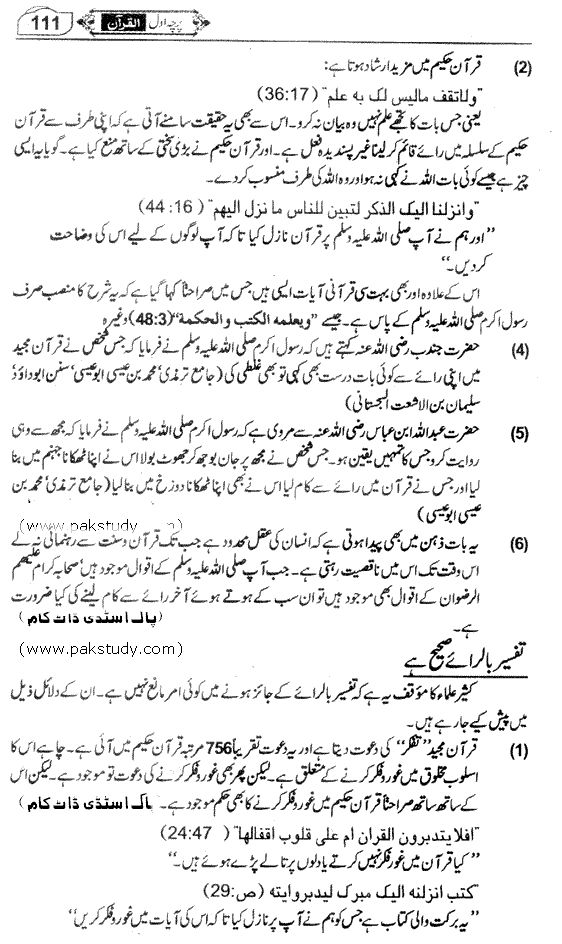 111 پرچہ اول القرآن
(2) قرآن حکیم میں مزید ارشاد ہوتا ہے:
"ولاتقف مالیس لک به علم" (36:17)
یعنی جس بات کا تجھے علم نہیں وہ بیان نہ کرو۔ اس سے بھی یہ حقیقت سامنے آتی ہے کہ اپنی طرف سے قرآن
حکیم کے سلسلہ میں رائے قائم کرلینا غیر پسندیدہ فعل ہے۔ اور قرآن حکیم نے بڑی سختی کے ساتھ منع کیا ہے۔ گویا یہ ایسی
چیز ہے جیسے کوئی بات اللہ نے کہی نہ ہو اور وہ اللہ کی طرف منسوب کردے۔
"وانزلنا الیک الذکر لتبین للناس ما نزل الیهم" (44:16)
"اور ہم نے آپ صلی اللہ علیہ وسلم پر قرآن نازل کیا تاکہ آپ لوگوں کے لیے اس کی وضاحت
کردیں۔"
اس کے علاوہ اور بھی بہت سی قرآنی آیات ایسی ہیں جس میں صراحتاً کہا گیا ہے کہ یہ شرح کا منصب صرف
رسول اکرم صلی اللہ علیہ وسلم کے پاس ہے۔ جیسے "ویعلمه الکتب والحکمة" (48:3) وغیرہ
(4) حضرت جندب رضی اللہ عنہ کہتے ہیں کہ رسول اکرم صلی اللہ علیہ وسلم نے فرمایا کہ جس شخص نے قرآن مجید
میں اپنی رائے سے کوئی بات درست بھی کہی تو بھی غلطی کی (جامع ترمذی' محمد بن عیسی ابو عیسی' سنن ابو داؤد'
سلیمان بن الاشعت السجستانی)
(5) حضرت عبداللہ ابن عباس رضی اللہ عنہ سے مروی ہے کہ رسول اکرم صلی اللہ علیہ وسلم نے فرمایا کہ مجھ سے وہی
روایت کرو جس کا تمہیں یقین ہو۔ جس شخص نے مجھ پر جان بوجھ کر جھوٹ بولا اس نے اپنا ٹھکانا جہنم میں بنا
لیا اور جس نے قرآن میں رائے سے کام لیا اس نے بھی اپنا ٹھکانا دوزخ میں بنالیا (جامع ترمذی' محمد بن
عیسی ابو عیسی)
(www.pakstudy. m)
(6) یہ بات ذہن میں بھی پیدا ہوتی ہے کہ انسان کی عقل محدود ہے جب تک قرآن و سنت سے رہنمائی نہ لے
اس وقت تک اس میں ناقصیت رہتی ہے۔ جب آپ صلی اللہ علیہ وسلم کے اقوال موجود ہیں' صحابہ کرام علیهم
الرضوان کے اقوال بھی موجود ہیں تو ان سب کے ہوتے ہوئے آخر رائے سے کام لینے کی کیا ضرورت
ہے۔ (پاک اسٹڈی ڈاٹ کام)
(www.pakstudy.com)
تفسیر بالرائے صحیح ہے
کثیر علماء کا مؤقف یہ ہے کہ تفسیر بالرائے کے جائز ہونے میں کوئی امر مانع نہیں ہے۔ ان کے دلائل ذیل
میں پیش کیے جا رہے ہیں۔
(1) قرآن مجید "تفکر" کی دعوت دیتا ہے اور یہ دعوت تقریباً 756 مرتبہ قرآن حکیم میں آئی ہے۔ چاہے اس کا
اسلوب مخلوق میں غور و فکر کرنے کے متعلق ہے۔ لیکن پھر بھی غور و فکر کرنے کی دعوت تو موجود ہے۔ لیکن اس
کے ساتھ ساتھ صراحتاً قرآن حکیم میں غور و فکر کرنے کا بھی حکم موجود ہے۔ پاک اسٹڈی ڈاٹ کام
"افلا یتدبرون القران ام علی قلوب اقفالها" (24:47)
"کیا قرآن میں غور و فکر نہیں کرتے یا دلوں پر تالے پڑے ہوئے ہیں۔"
کتب انزلنه الیک مبرک لیدبروایته (ص:29)
"یہ برکت والی کتاب ہے جس کو ہم نے آپ پر نازل کیا تاکہ اس کی آیات میں غور و فکر کریں"